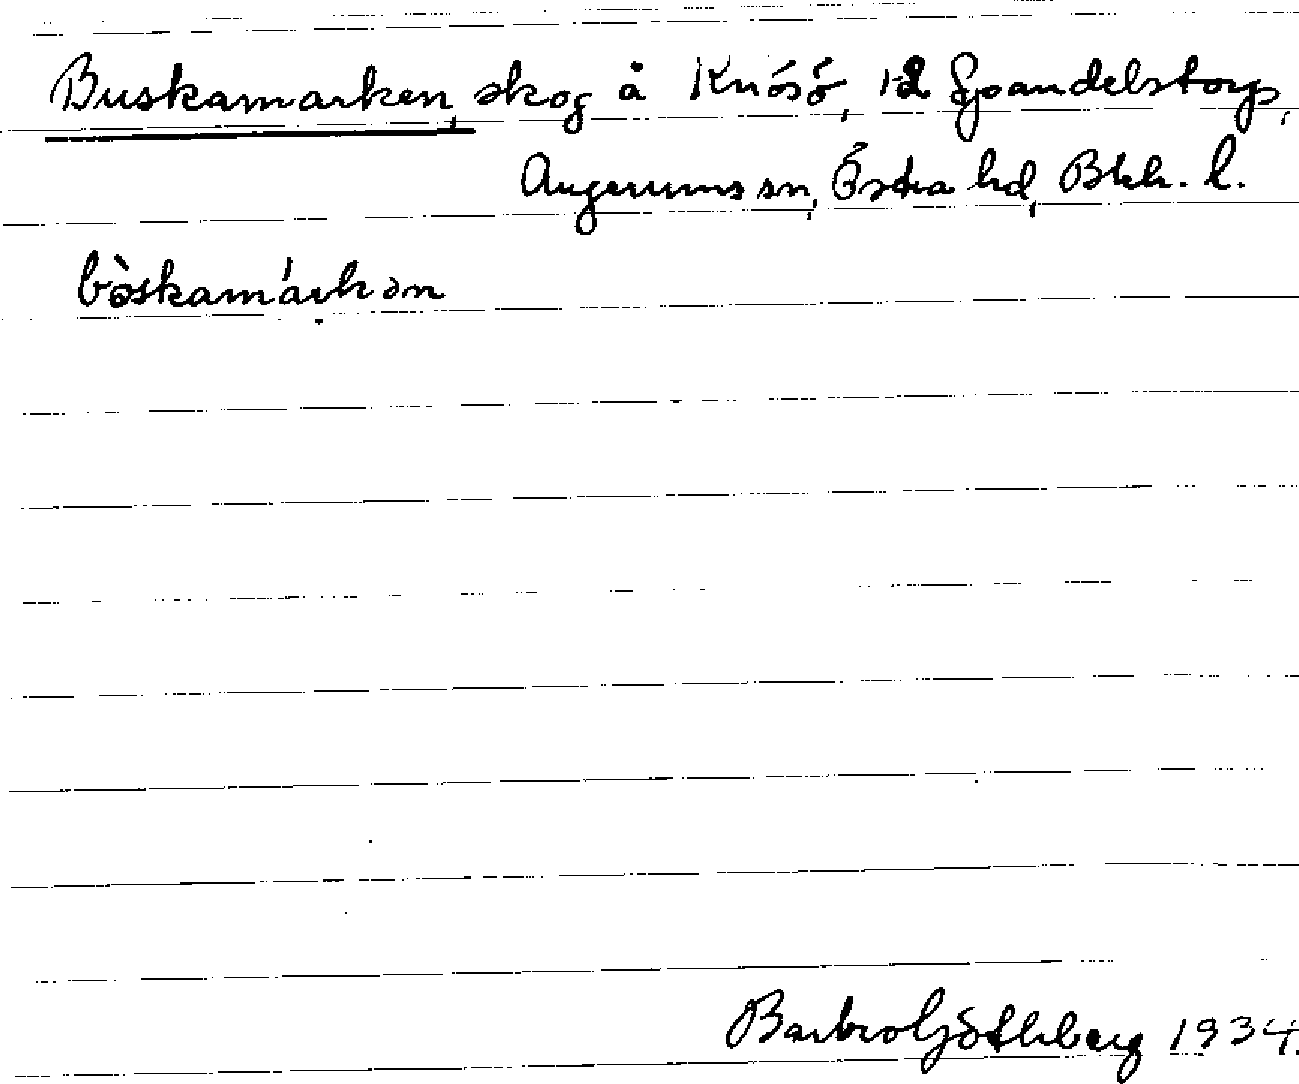 Buskamarken, skog å Knösö, 12 Spandelstorp,
Augerums sn, Östra hd, Blek. l.
bòskamárkən
Barbro Göthberg 1934.